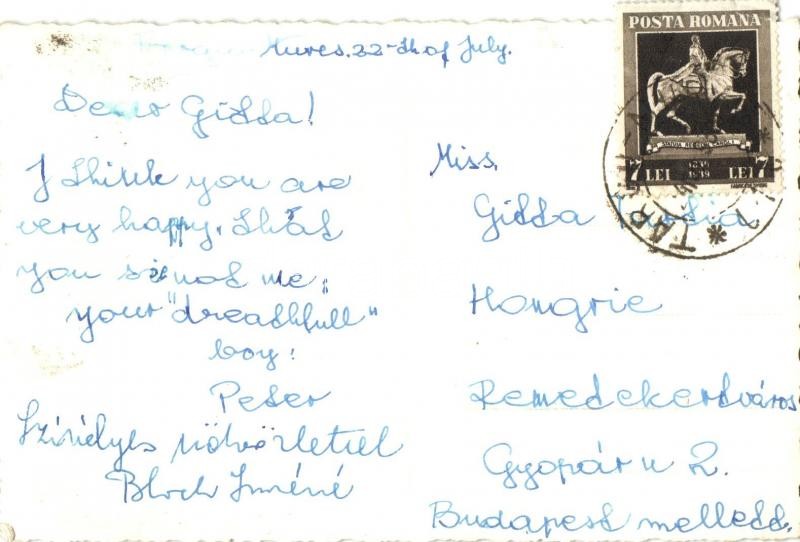 Mures. 22-th of July.
Dear Gitta!
I think you are
very happy, that
you se not me;
your "dreathfull"
boy:
Peter
Szivélyes üdvözlettel
Bloch Imréné
POSTA ROMANA
STATUIA REGELUI CAROL I
7 LEI 1839 1939 LEI 7
Miss.
Gitta
Hongrie
Remetekertváros
Gyopár u 2.
Budapest mellett.